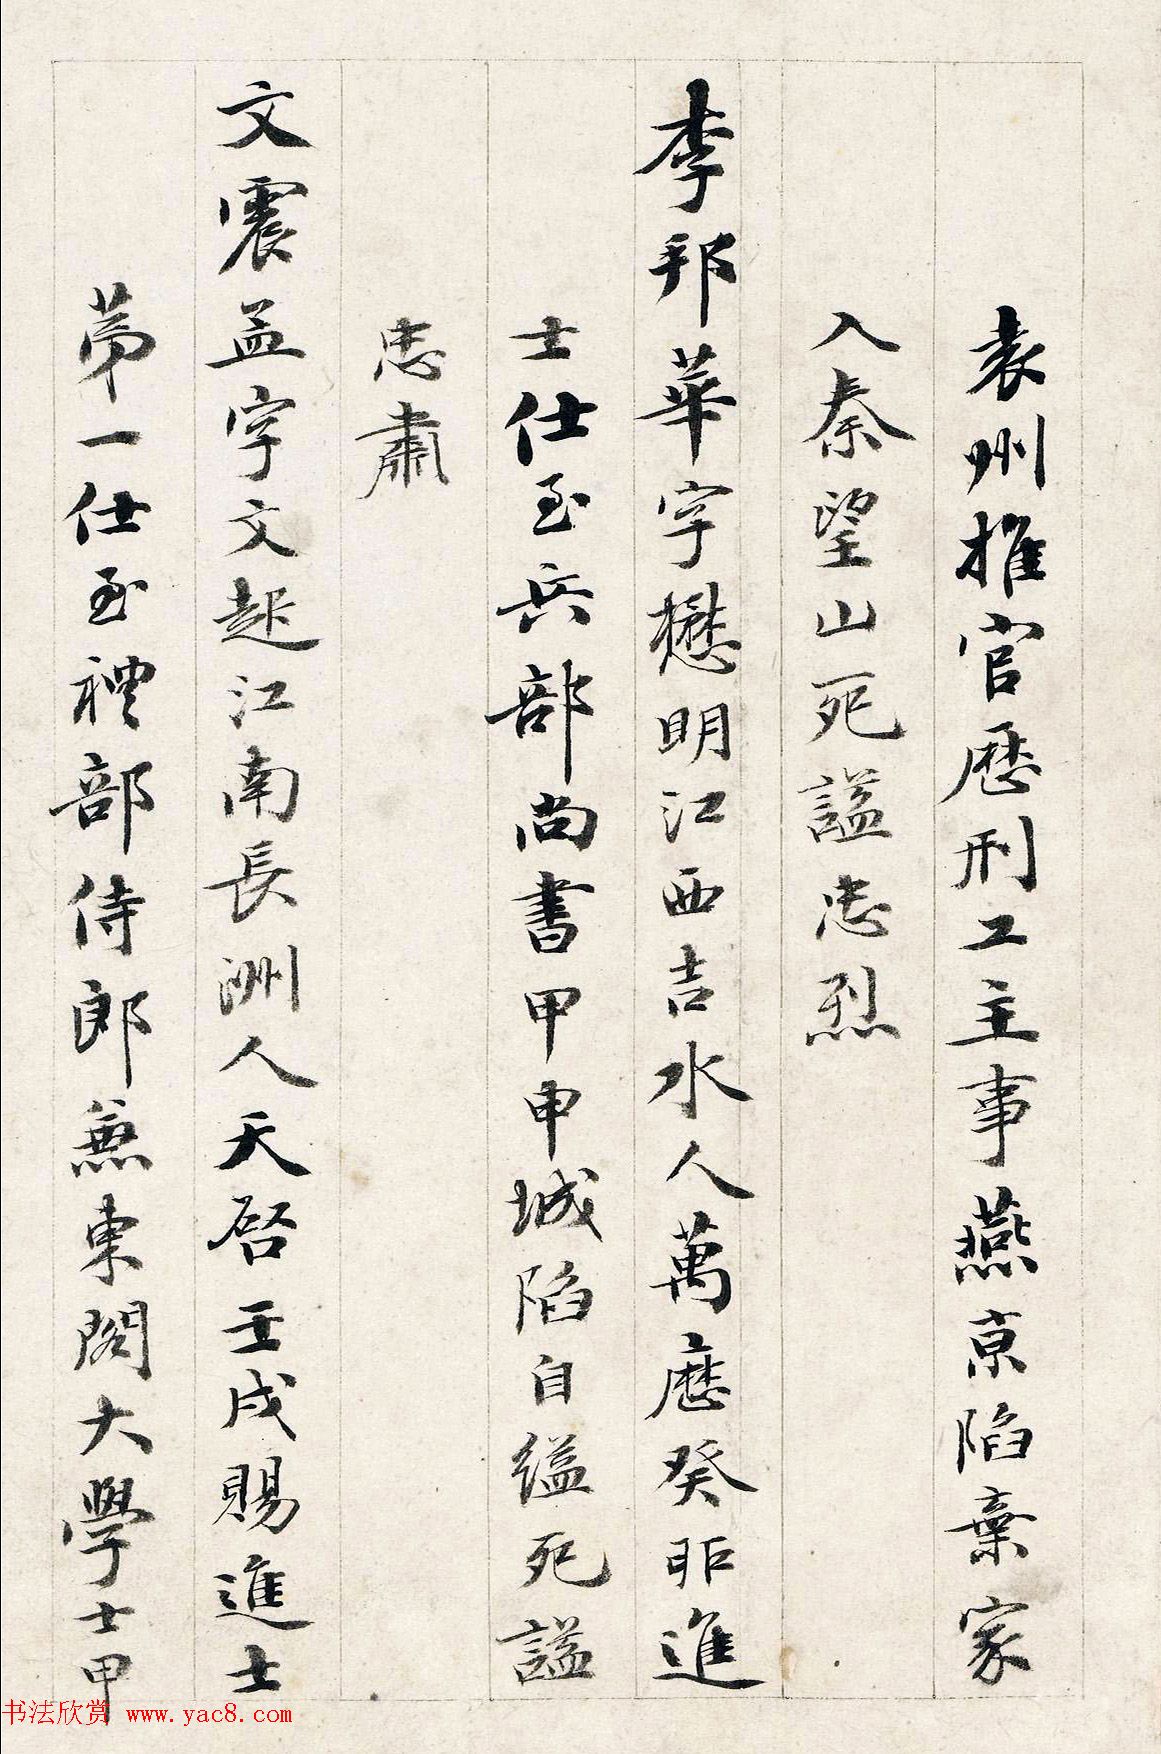 袁州推官歷刑工主事燕京陷棄家
入秦望山死謚忠烈
李邦華字懋明江西吉水人萬歷癸卯進
士仕至兵部尚書甲申城陷自縊死謚
忠肅
文震孟字文起江南長洲人天啓壬戌賜進士
苐一仕至禮部侍郎兼東閣大學士甲
书法欣赏 www.yac8.com